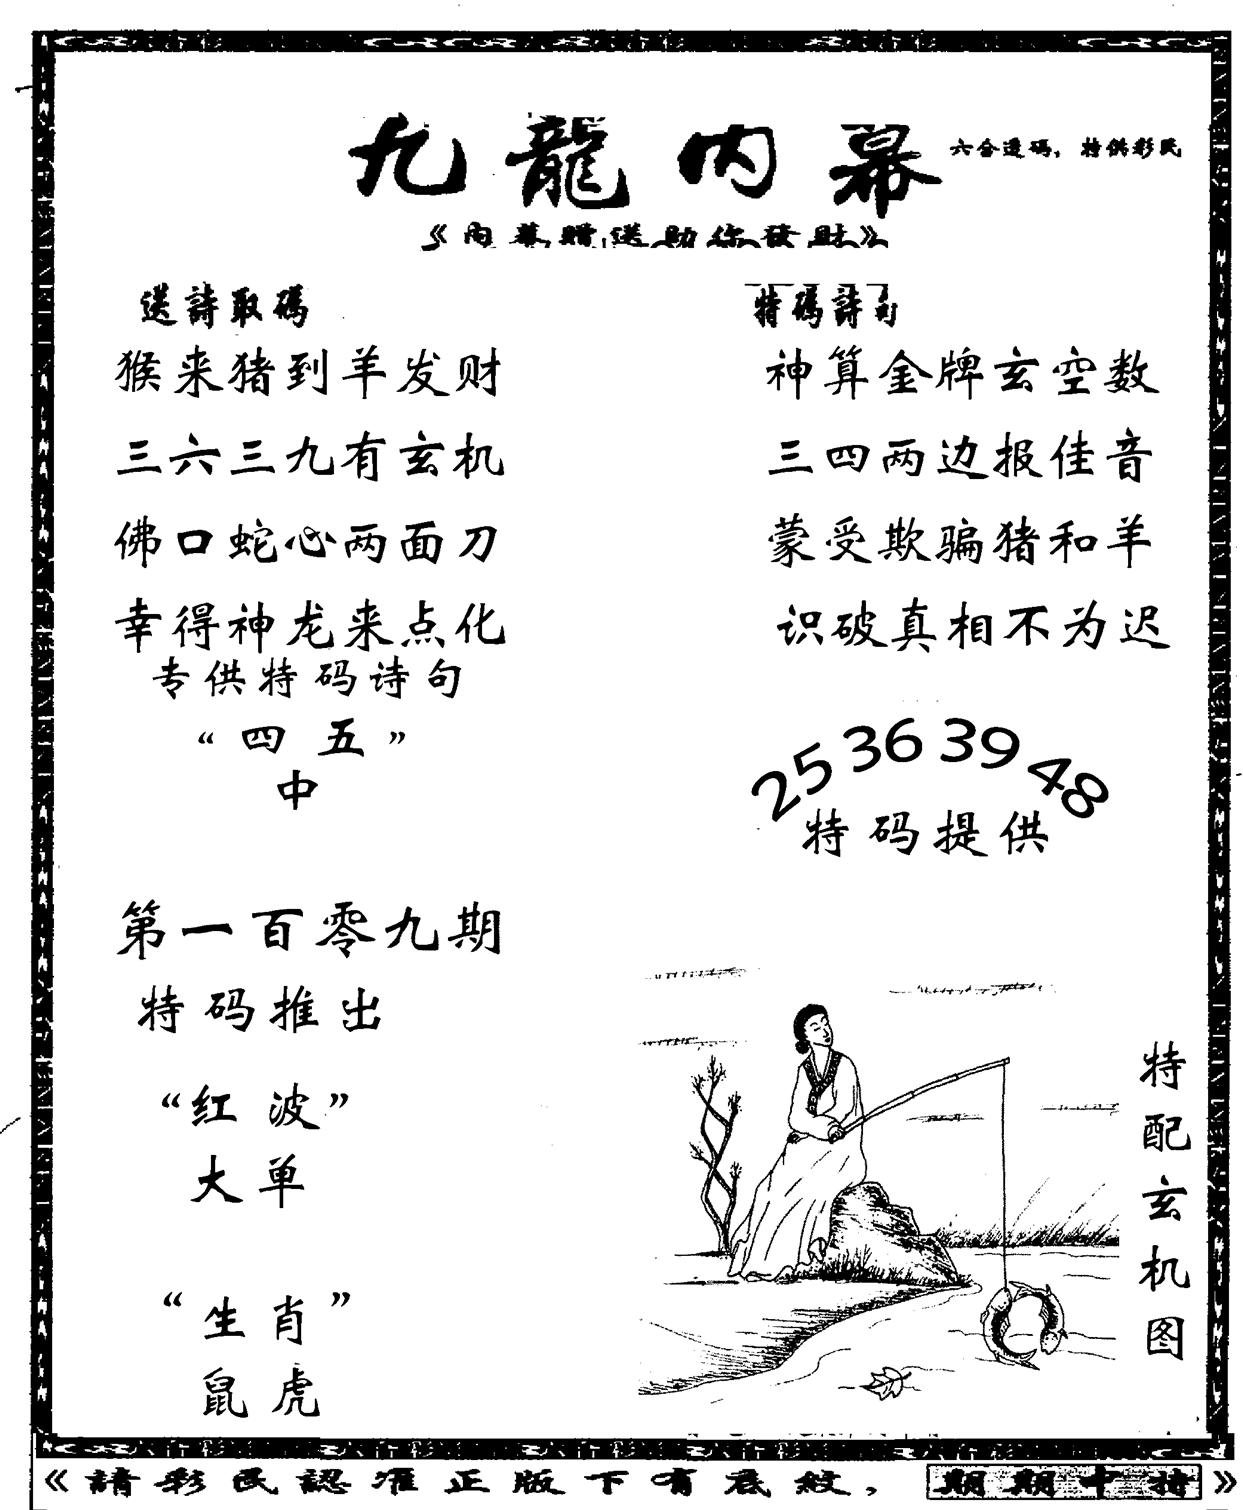 九龍内幕
六合透码，特供彩民
《内幕赠送助你發财》
送詩取碼
猴来猪到羊发财
三六三九有玄机
佛口蛇心两面刀
幸得神龙来点化
专供特码诗句
“四五”
中
第一百零九期
特码推出
“红波”
大单
“生肖”
鼠虎
特碼詩
神算金牌玄空数
三四两边报佳音
蒙受欺骗猪和羊
识破真相不为迟
25 36 39 48
特码提供
特配玄机图
《請彩民認准正版下有底紋，期期中特》